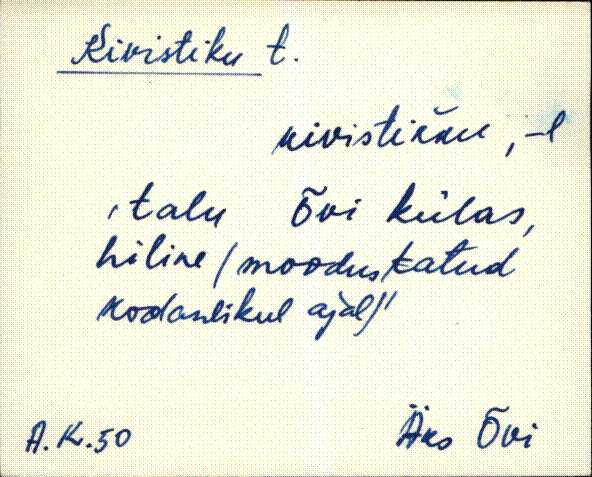 Kivistiku t.
kivistikku, -l
"talu Õvi külas,
hiline (moodustatud
kodanlikul ajal)"
A.Kr.50
Äks Õvi